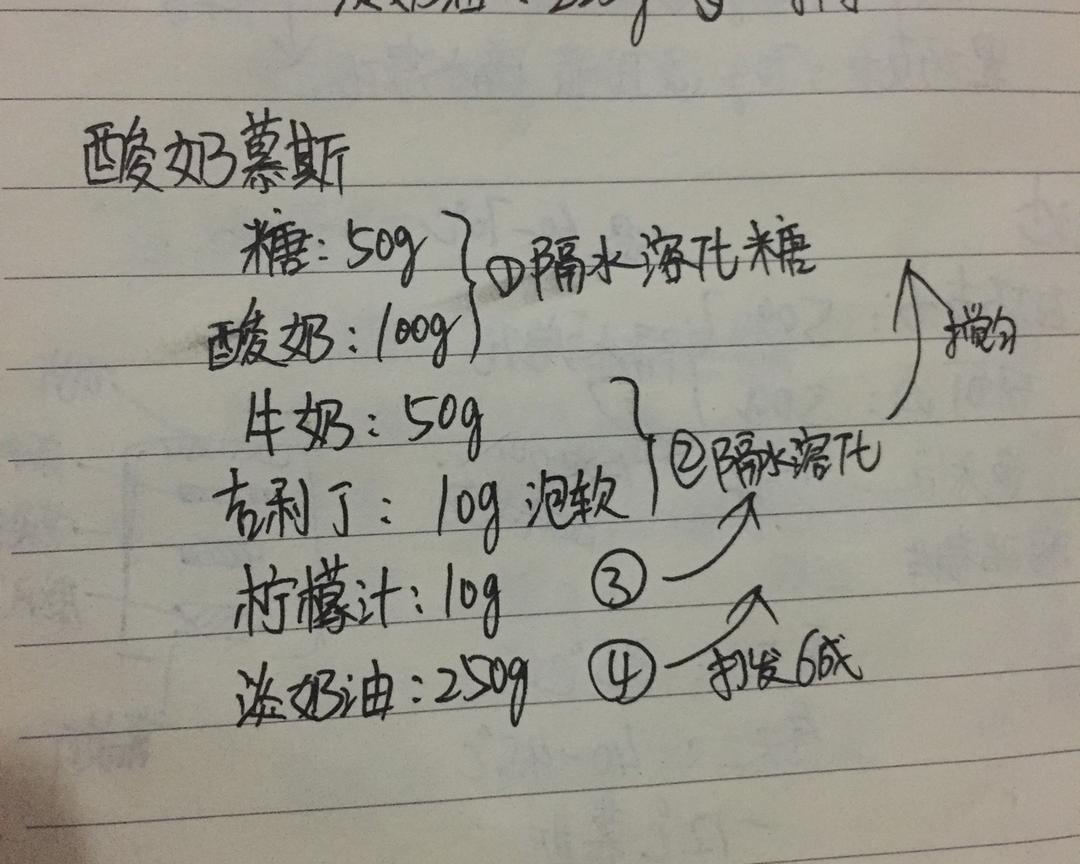 酸奶慕斯
糖：50g
①隔水溶化糖
酸奶：100g
搅匀
牛奶：50g
②隔水溶化
吉利丁：10g 泡软
柠檬汁：10g ③
淡奶油：250g ④ 打发6成